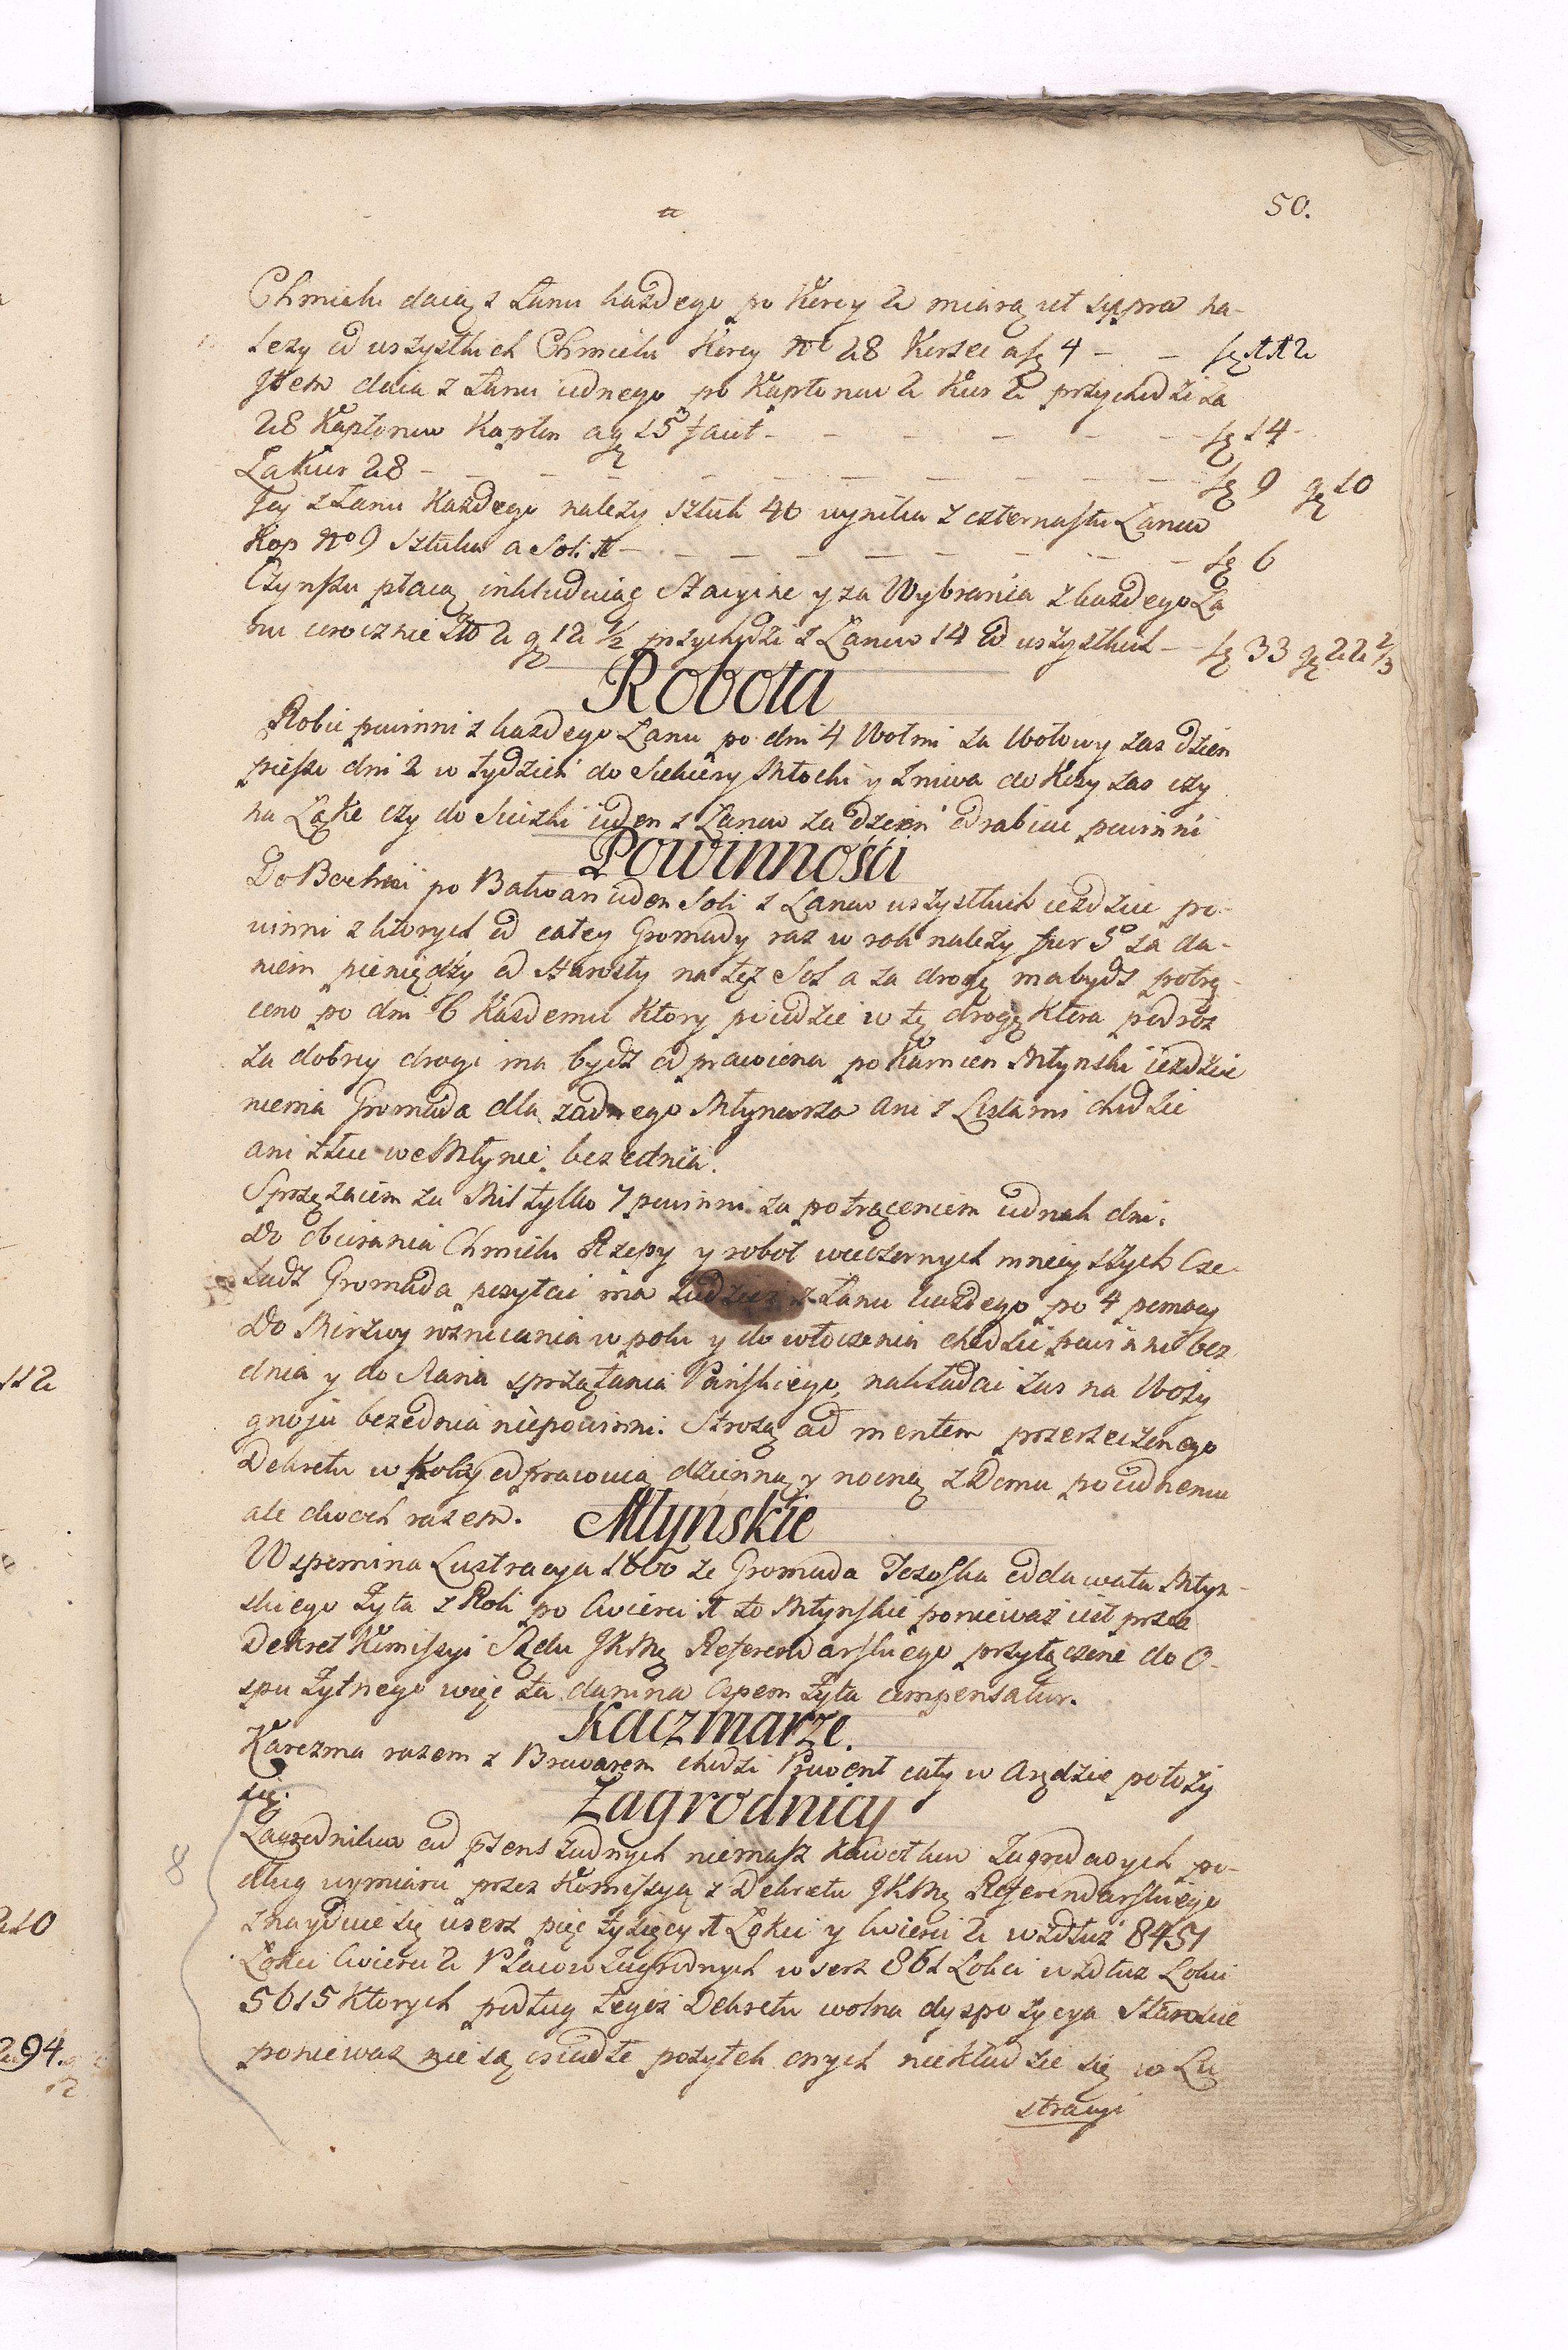 50.
Chmielu daią z Łanu każdego po Korcy 2 miarą ut supra na-
leży od wszystkich Chmielu Korcy No 28 Korzec a fl 4 — — fl 112
Item daią z Łanu iednego po Kapłonow 2 Kur 2 przychodzi za
28 Kapłonow Kapłon a gr 15 facit — — — — — fl 14
Za Kur 28 — — — — — — — fl 9 gr 10
Jay z Łanu Każdego należy sztuk 40 wynika z czternastu Łanow
Kop No 9 sztuka a Sol. 1 — — — — — — — fl 6
Czynszu płacą inkluduiąc Stacyine y za Wybrania z każdego Ła
nu corocznie Zło 2 gr 12 1/2 przychodzi z Łanow 14 od wszystkich — fl 33 gr 22 2/3
Robota
Robic powinni z każdego Łanu po dni 4 Wołmi za Wołowy zas dzien
pieszo dni 2 w tydzień do Siekiery Młocki y Żniwa do Kosy zas czy
na Łąke czy do Sieczki ieden z Łanow za dzień odrabiac powinni
Powinności
Do Bochni po Bałwan ieden Soli z Łanow wszystkich iezdzic po-
winni z ktorych od całey Gromady raz w rok należy fur 5 za da-
niem pieniędzy od Starosty na tęż Sol a za drogę ma bydz potrą-
ceno po dni 6 Każdemu Ktory poiedzie w tę drogę Ktora podroz
za dobrey drogi ma bydz odprawiona po Kamien Młynski iezdzic
niema Gromada dla żadnego Młynarza ani z Listami chodzic
ani tłuc we Młynie bez ednia.
Sprzężaiem za Mil tylko 7 powinni za potrąceniem iednak dni.
Do obierania Chmielu Rzepy y robot wieczornych mnieyszych Cze-
ladz Gromada posyłac ma ludzież z Łanu każdego po 4 pomocy
Do Mierzwy roznicania w polu y do włoczenia chodzic powinni bez
dnia y do Siana sprzątania Pańskiego, nakładac zas na Wozy
gnoju bezednia niepowinni. Strożą ad mentem przerzeczonego
Dekretu w Koley odprawuią dzienną y nocną z Domu poiednemu
ale dwoch razem.
Młyńskie
Wspomina Lustracya 1660 ze Gromada Jezoska oddawała Młyn-
skiego Żyta z Roli po Cwierci 1 to Młynskie poniewaz iest przez
Dekret Komissyi Sądu JKMci Referendarskiego przyłączone do O-
spu Żytnego więc ta danina Ospem Żyta compensatur.
Kaczmarze.
Karczma razem z Browarem chodzi Prowent cały w Arędzie położy
się.
Zagrodnicy
Zagrodnikow od pienszadnych niemasz kawałkow Zagrodowych po-
dług wymiaru przez Komissyą z Dekretu JKMci Referendarskiego
znayduie się wszerz pięc tysięcy 1 Łokci y Cwierci 2 wzdłuż 8451
Łokci Cwierci 2 Placow Zagrodnych wszerz 861 Łokci wzdłuz Łokci
5615 Ktorych podług tegoż Dekretu wolna dyspozycya Staroscie
poniewaz nie są osiadłe pożytek onych niekładzie się w Lu
stracyi
8
112
210
294.